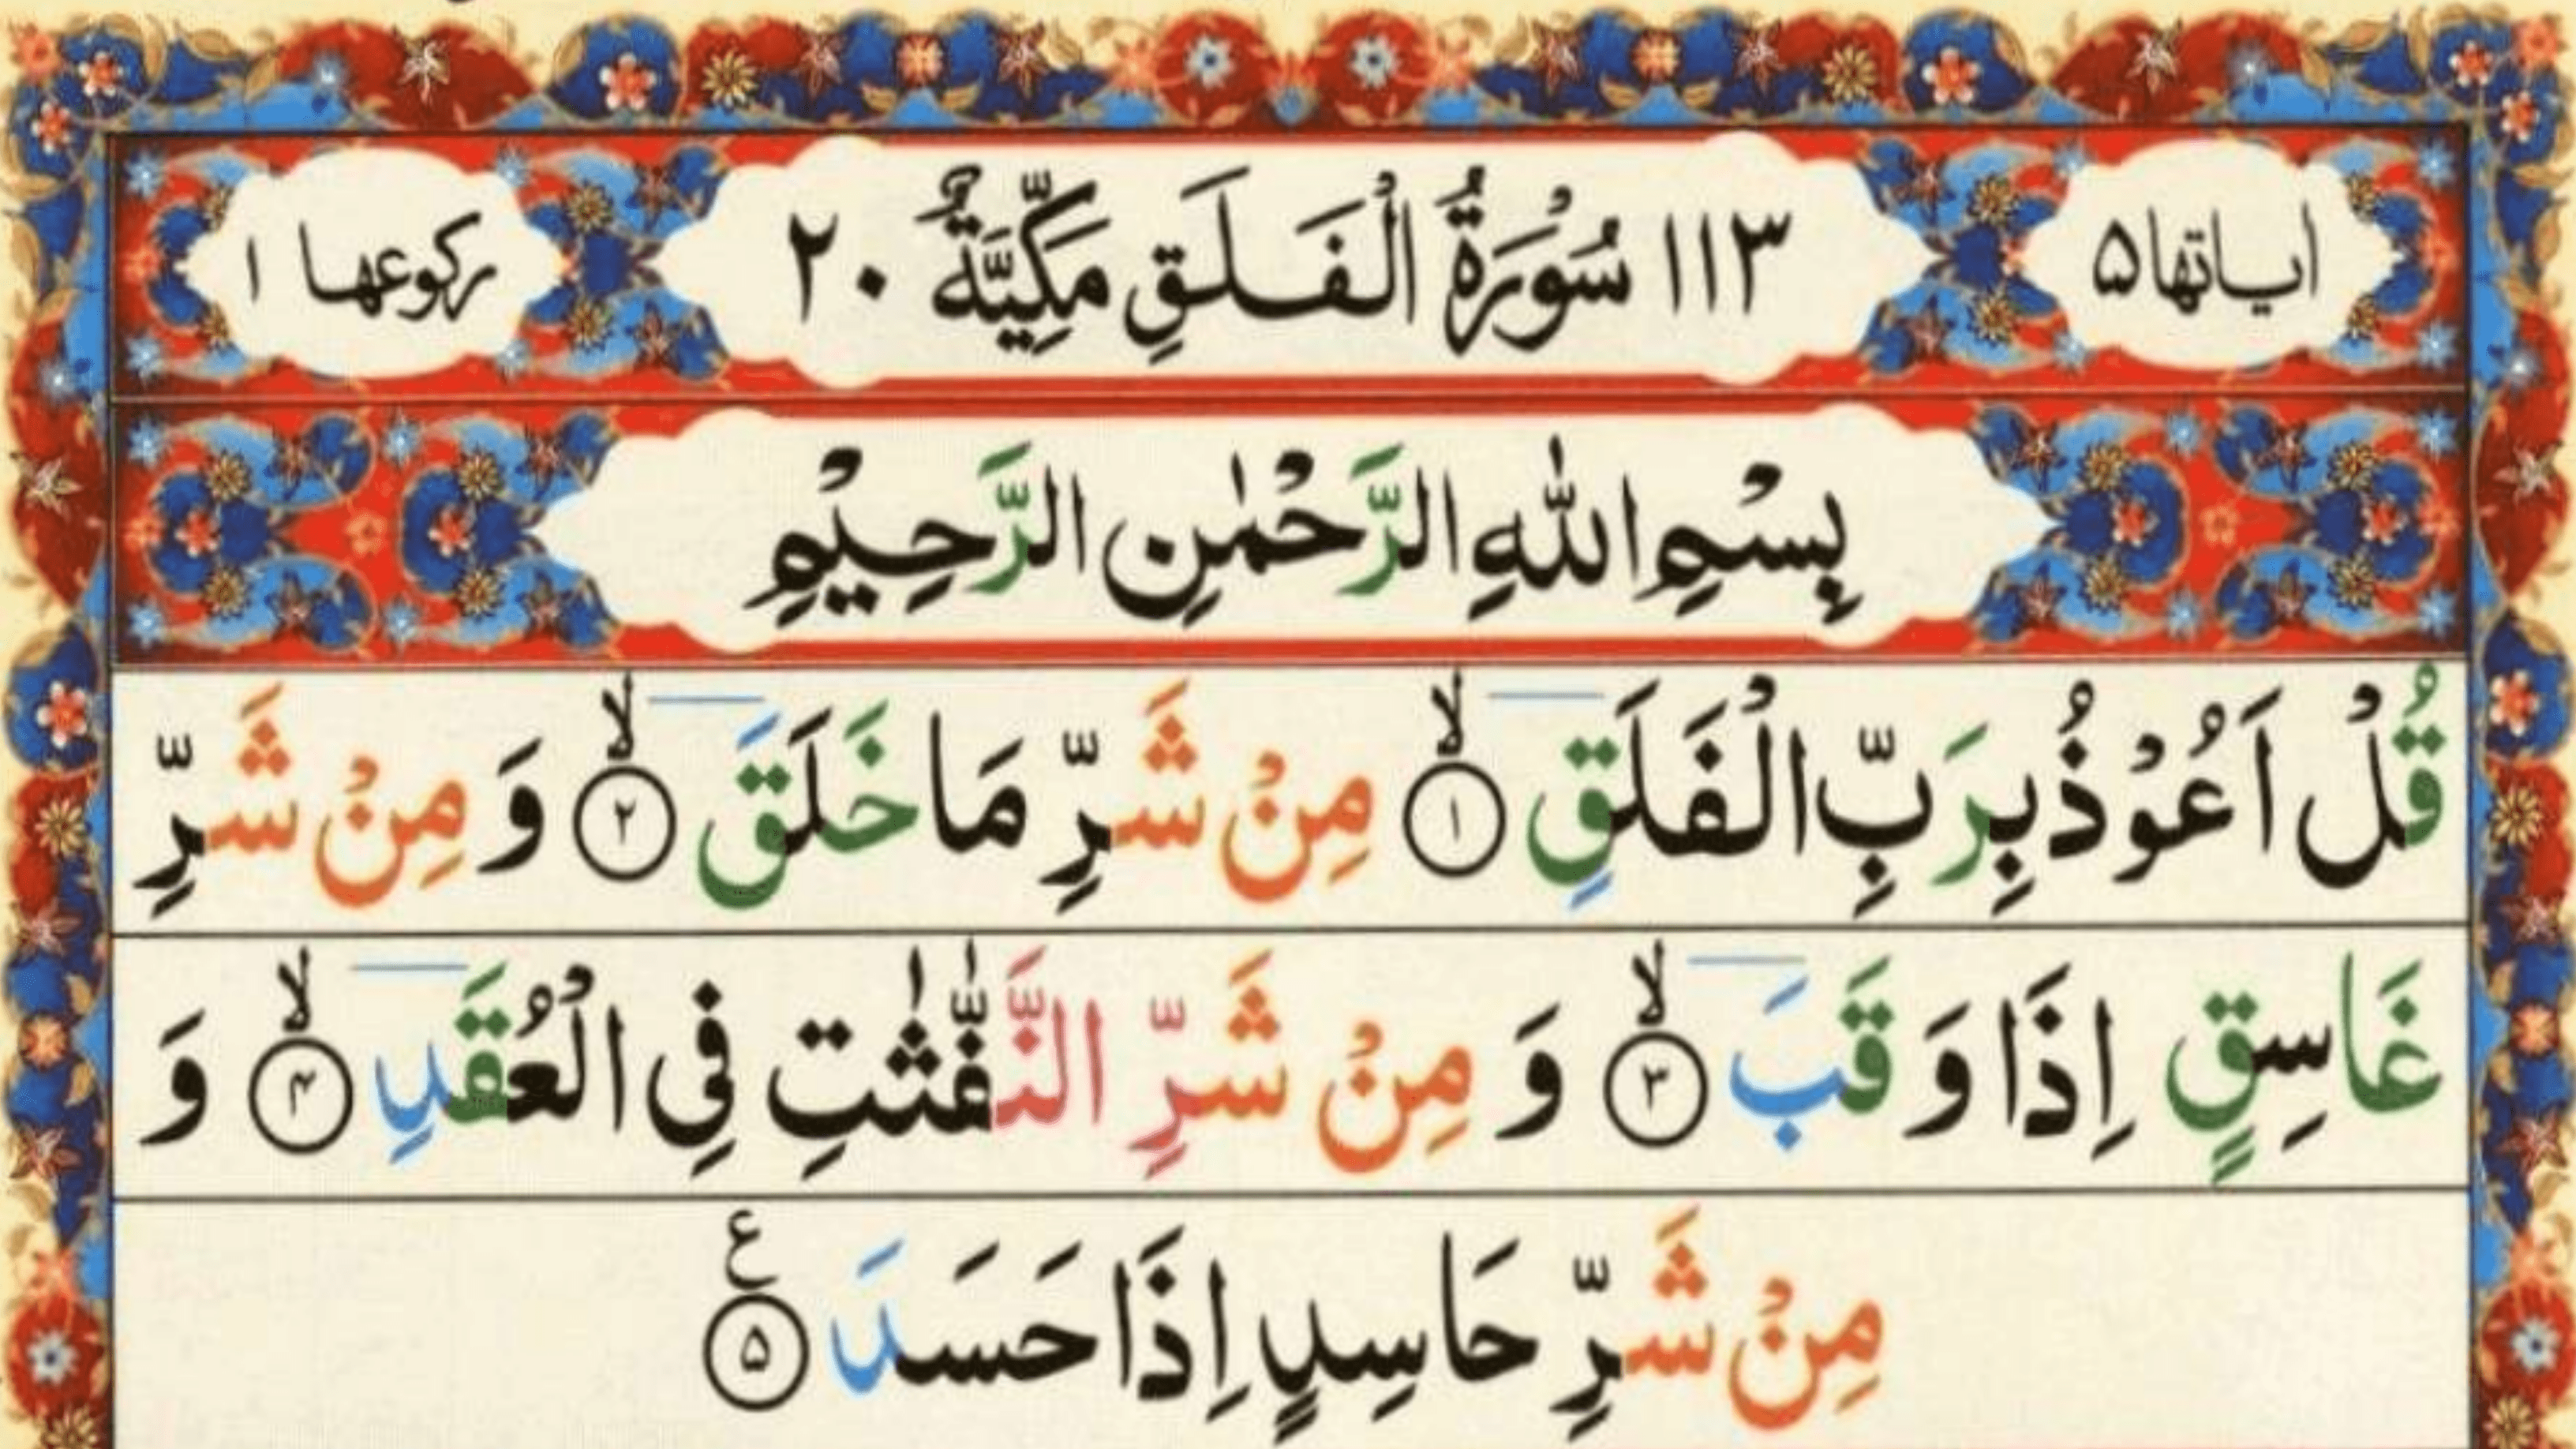 اٰیاتها ۵ ۱۱۳ سُوْرَةُ الْفَلَقِ مَكِّیَّةٌ ۲۰ رکوعها ۱
بِسْمِ اللّٰهِ الرَّحْمٰنِ الرَّحِیْمِ
قُلْ اَعُوْذُ بِرَبِّ الْفَلَقِ ۙ﴿۱﴾ مِنْ شَرِّ مَا خَلَقَ ۙ﴿۲﴾ وَ مِنْ شَرِّ
غَاسِقٍ اِذَا وَقَبَ ۙ﴿۳﴾ وَ مِنْ شَرِّ النَّفّٰثٰتِ فِی الْعُقَدِ ۙ﴿۴﴾ وَ
مِنْ شَرِّ حَاسِدٍ اِذَا حَسَدَ ﴿۵﴾ ع